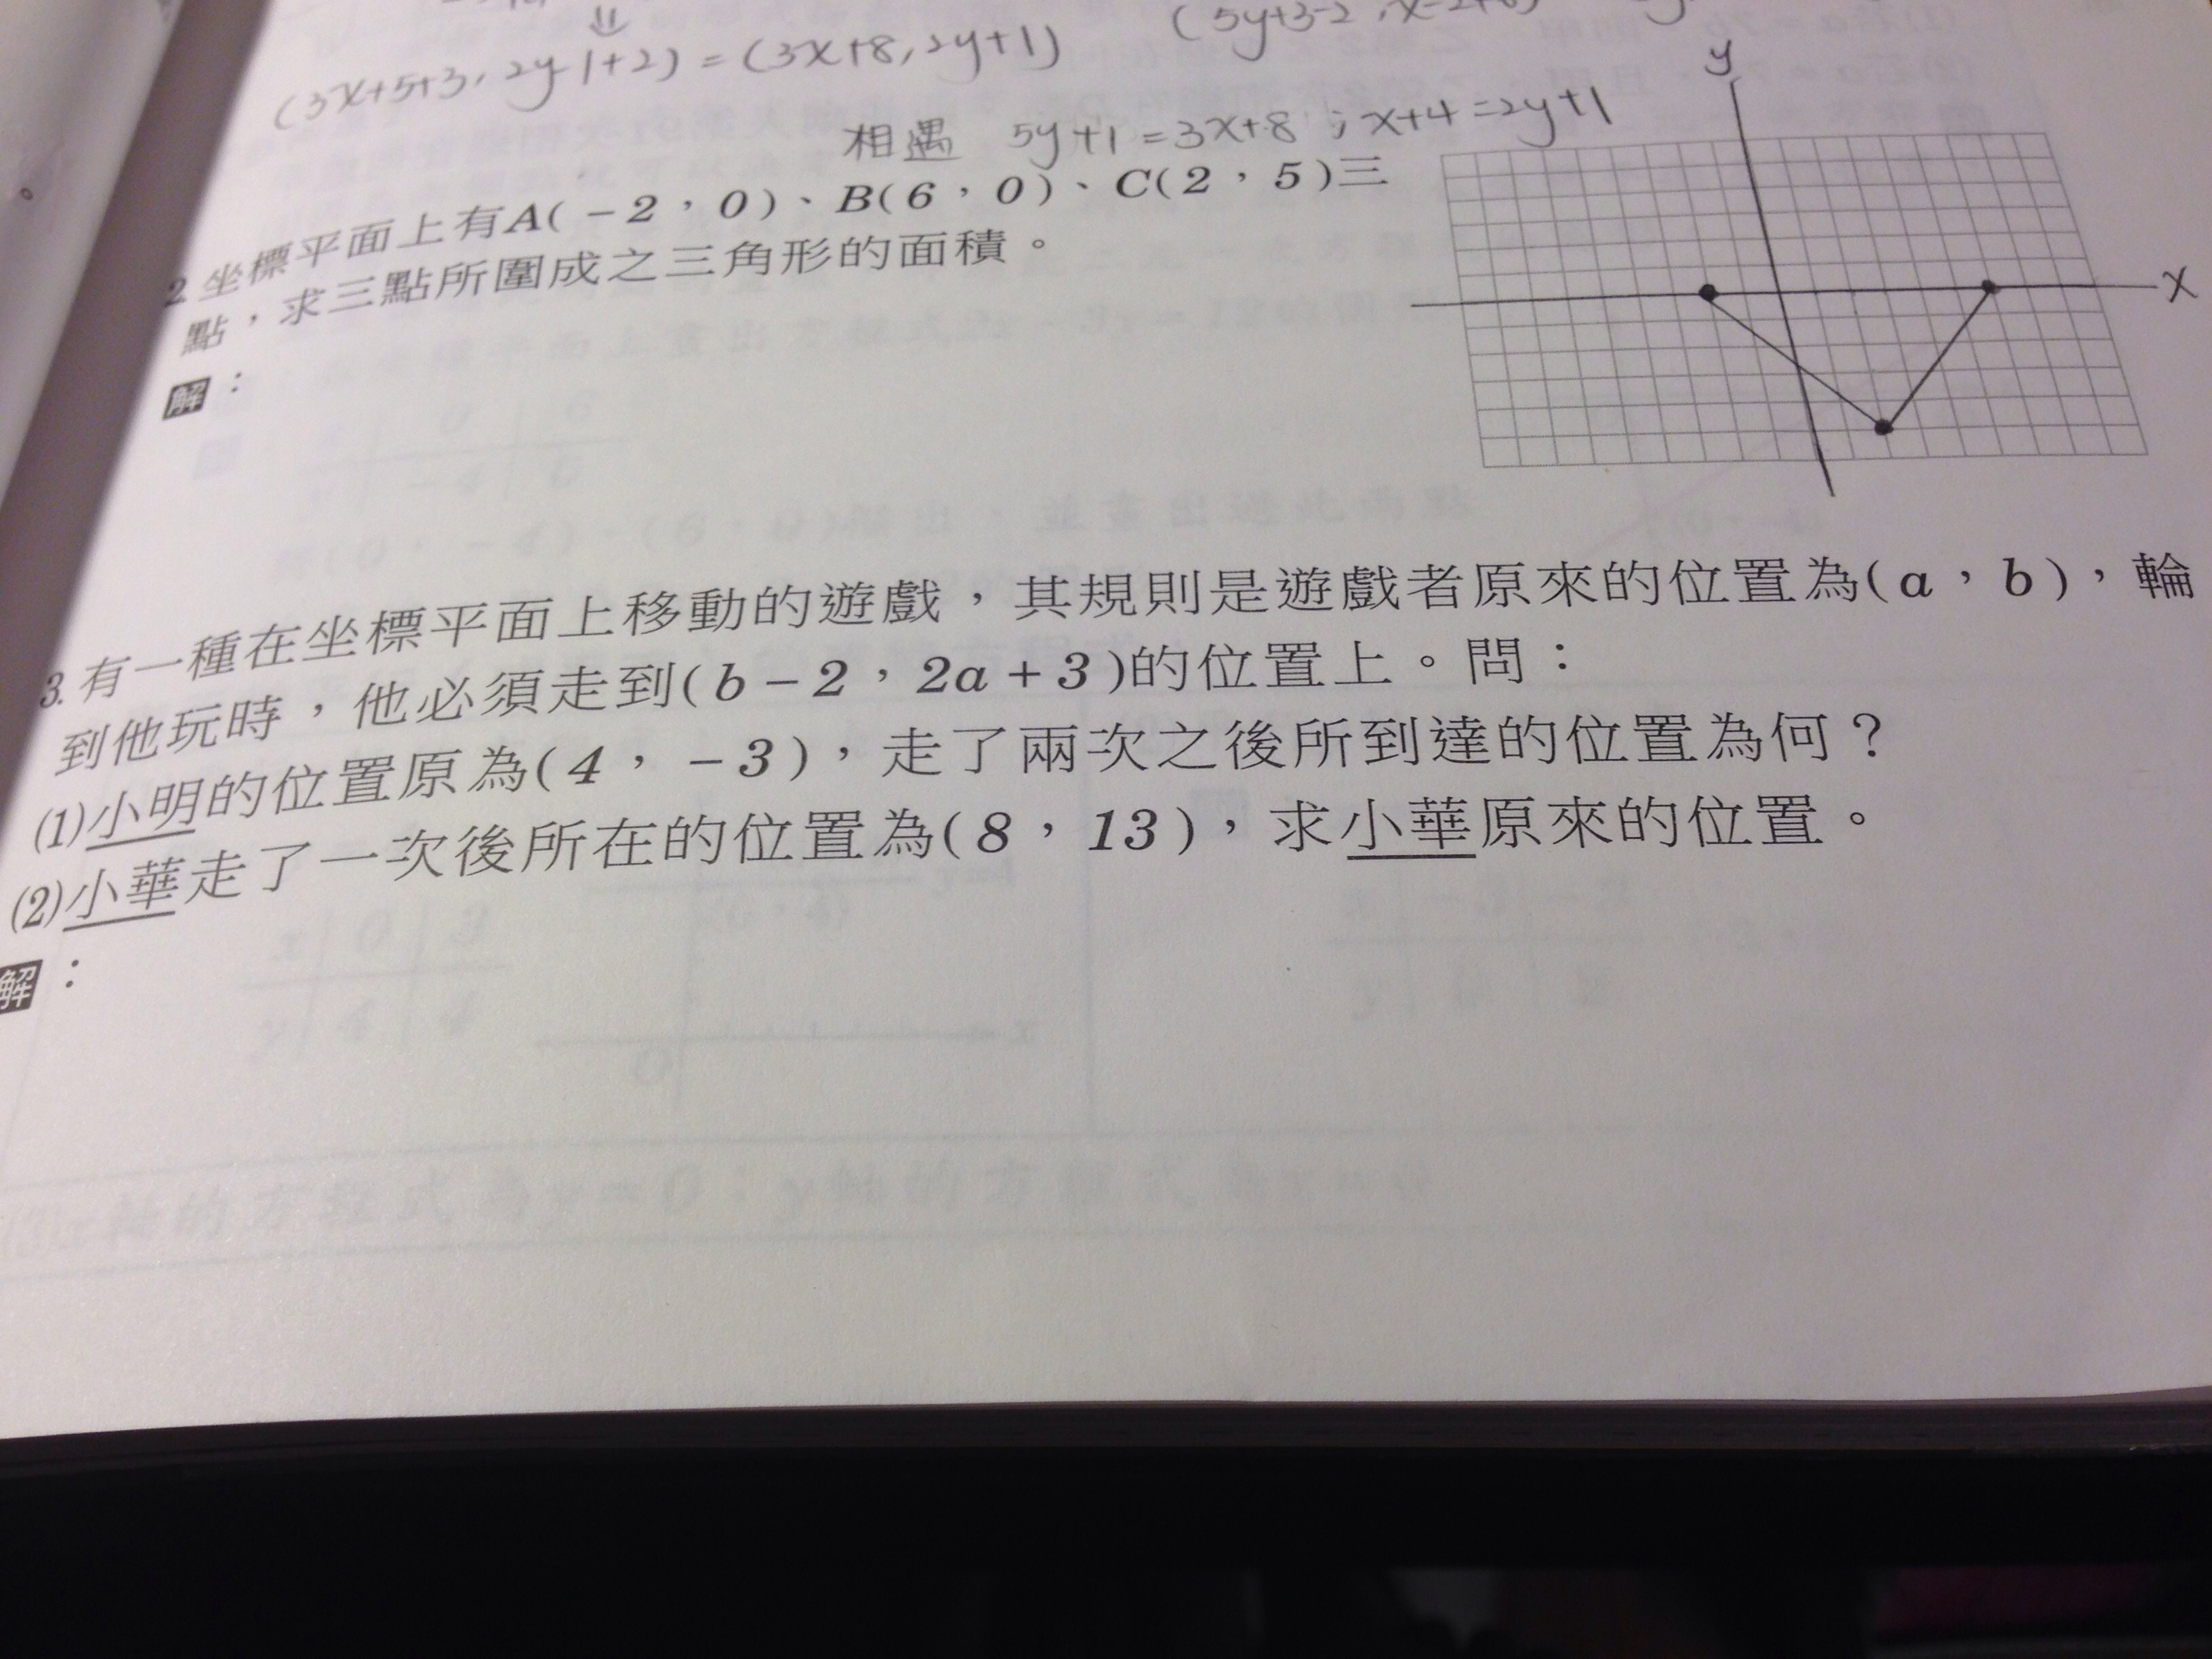 (3x+5+3, 2y-1+2) = (3x+8, 2y+1)
相遇 5y+1=3x+8 ; x+4=2y+1
2 坐標平面上有A(-2,0)、B(6,0)、C(2,5)三
點,求三點所圍成之三角形的面積。
解:
y
x
3. 有一種在坐標平面上移動的遊戲,其規則是遊戲者原來的位置為(a,b),輪
到他玩時,他必須走到(b-2,2a+3)的位置上。問:
(1)小明的位置原為(4,-3),走了兩次之後所到達的位置為何?
(2)小華走了一次後所在的位置為(8,13),求小華原來的位置。
解: